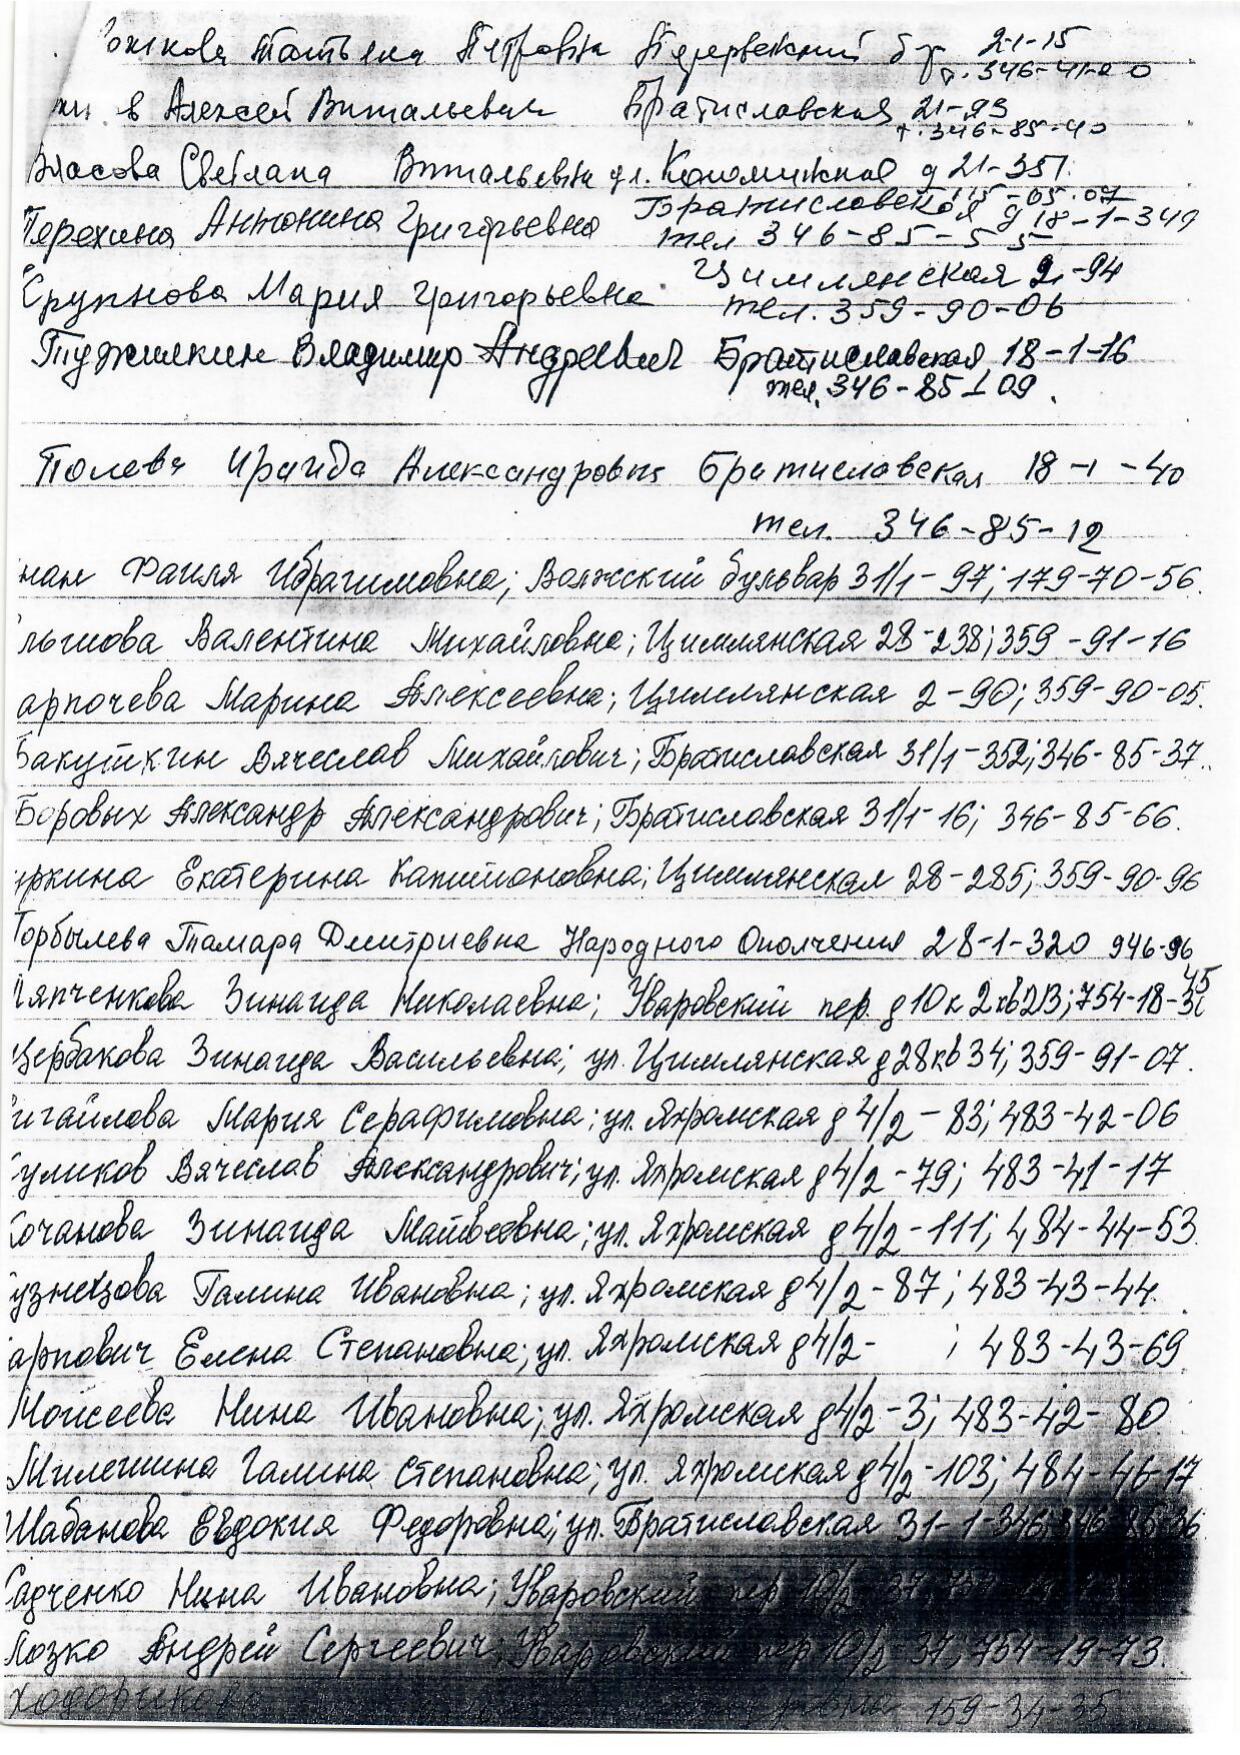 Татьяна Петровна Перервенский б-р 2-1-15
т. 346-41-20
в Алексей Витальевич Братиславская 21-93
т. 346-85-40
Власова Светлана Витальевна ул. Коломижская д 21-351.
115-05-07
Терехина Антонина Григорьевна Братиславская д 18-1-349
тел 346-85-55
Крупнова Мария Григорьевна Цимлянская 2-94
тел. 359-90-06
Туджилкин Владимир Андреевич Братиславская 18-1-16
тел. 346-85-09.
Полева Ираида Александровна Братиславская 18-1-40
тел. 346-85-12
Фаиля Ибрагимовна; Волжский бульвар 31/1-97; 179-70-56.
льшова Валентина Михайловна; Цимлянская 28-238; 359-91-16
арпочева Марина Алексеевна; Цимлянская 2-90; 359-90-05.
Бакуткин Вячеслав Михайлович; Братиславская 31/1-352; 346-85-37.
Боровых Александр Александрович; Братиславская 31/1-16; 346-85-66.
ркина Екатерина Капитоновна; Цимлянская 28-285; 359-90-96
Горбылева Тамара Дмитриевна Народного Ополчения 28-1-320 946-96
45
Ляпченкова Зинаида Николаевна; Уваровский пер. д 10 к 2 кв 213; 754-18-3
Щербакова Зинаида Васильевна; ул. Цимлянская д 28 кв 34; 359-91-07.
игайлова Мария Серафимовна; ул. Яхромская д 4/2-83; 483-42-06
уликов Вячеслав Александрович; ул. Яхромская д 4/2-79; 483-41-17
Кочанова Зинаида Матвеевна; ул. Яхромская д 4/2-111; 484-44-53.
узнецова Галина Ивановна; ул. Яхромская д 4/2-87; 483-43-44.
арпович Елена Степановна; ул. Яхромская д 4/2- ; 483-43-69
Моисеева Нина Ивановна; ул. Яхромская д 4/2-3; 483-42-80
Милешина Галина Степановна; ул. Яхромская д 4/2-103; 484-46-17
Шабанова Евдокия Федоровна; ул. Братиславская 31-1-346; 346-85-36
Садченко Нина Ивановна; Уваровский пер 10/2
Лозко Андрей Сергеевич; Уваровский пер 10/2-37; 754-19-73.
159-34-35